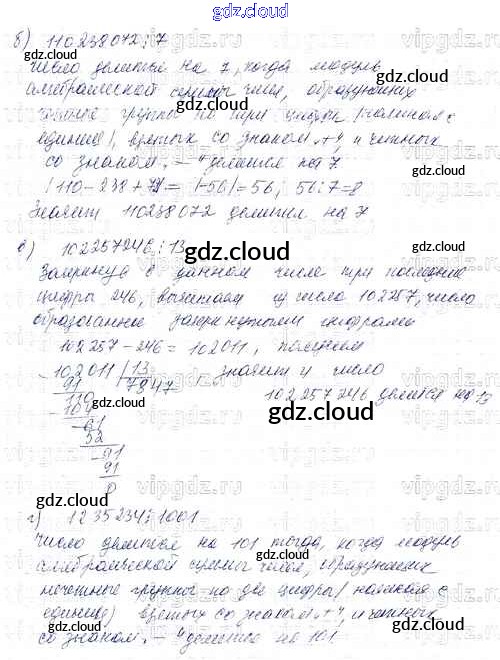 gdz.cloud
б) 110238072 : 7
число делится на 7, когда модуль
алгебраической суммы чисел, образующих
группы по три цифры (начиная с
единиц), взятых со знаком „+“, и четных
со знаком „–“ делится на 7
|110 – 238 + 72| = |–56| = 56, 56 : 7 = 8
Значит 110238072 делится на 7
в) 102257246 : 13
Зачеркнув в данном числе три последние
цифры 246, вычитаем из числа 102257, число
образованное зачеркнутыми цифрами
102257 – 246 = 102011, получаем
102011 | 13
91 7847
110
104
61
52
91
91
0
значит и число
102257246 делится на 13
г) 1235234 : 1001
Число делится на 101 тогда, когда модуль
алгебраической суммы чисел, образующих
нечетные группы по две цифры (начиная с
единиц) взятых со знаком „+“, и четных
со знаком „–“ делится на 101